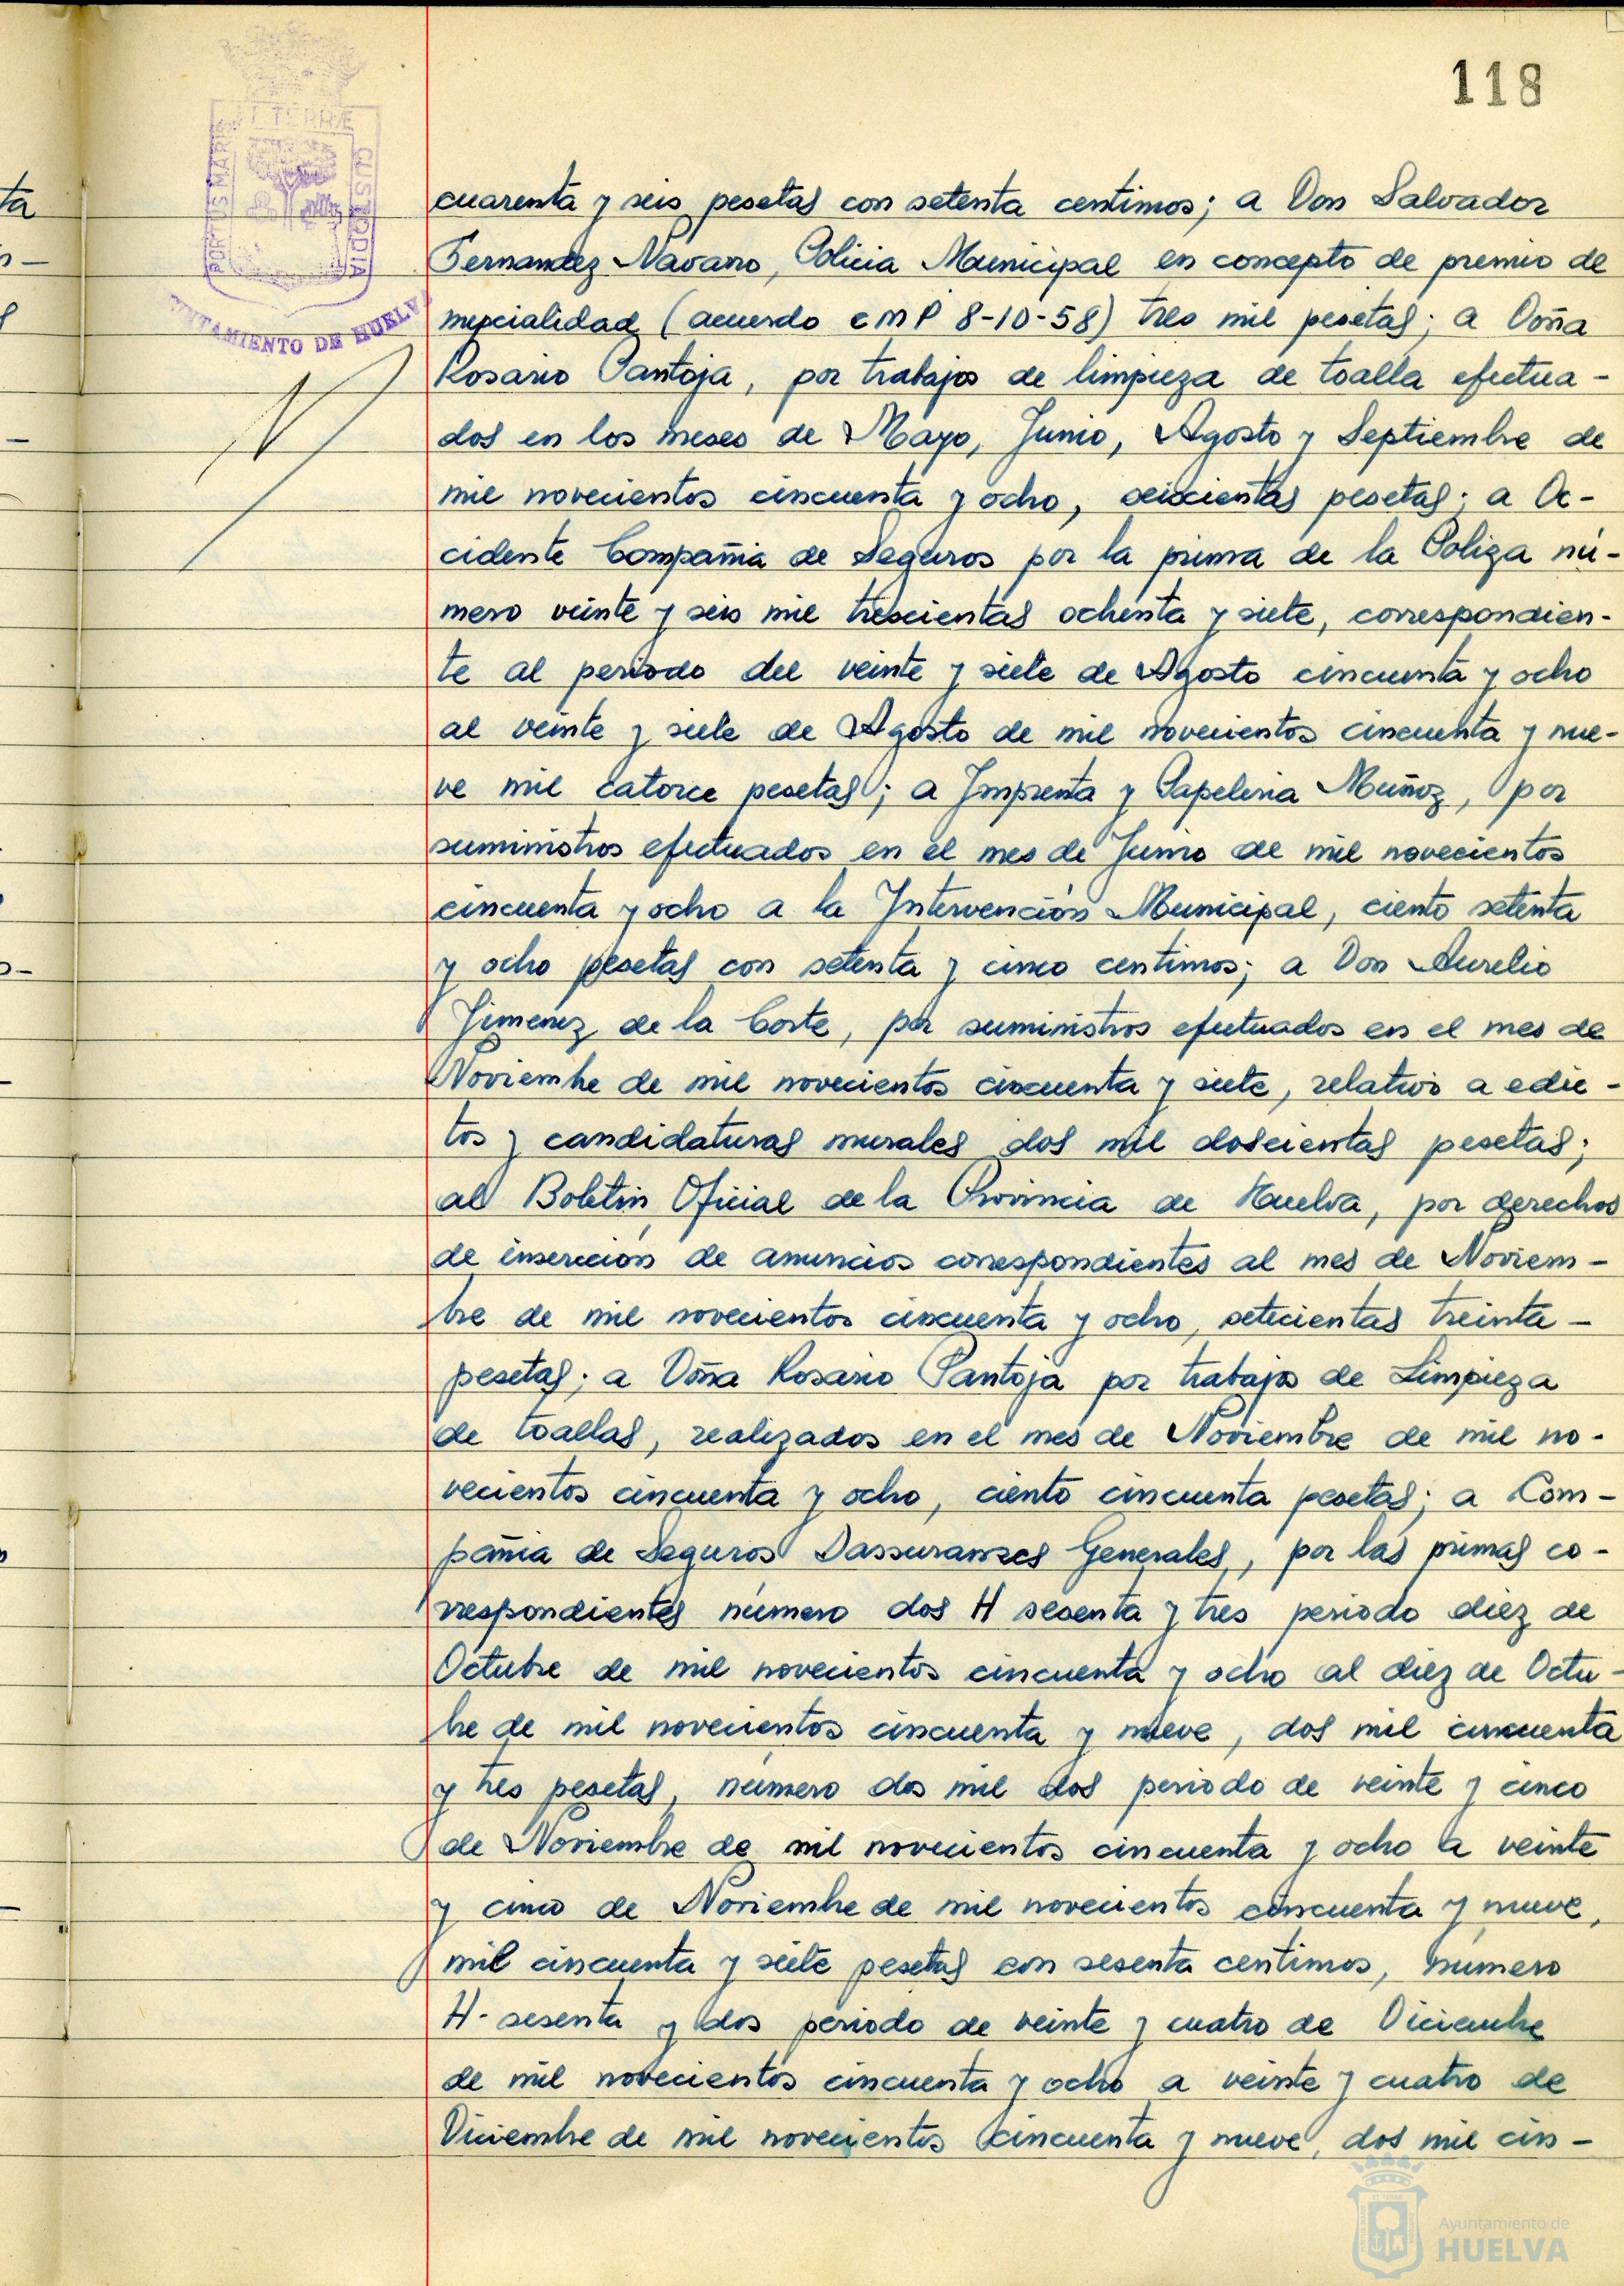 118
ET TERRÆ
PORTUS MARIS
CUSTODIA
AYUNTAMIENTO DE HUELVA
cuarenta y seis pesetas con setenta centimos; a Don Salvador
Fernandez Navarro, Policia Municipal en concepto de premio de
nupcialidad (acuerdo CMP 8-10-58) tres mil pesetas; a Doña
Rosario Pantoja, por trabajos de limpieza de toalla efectua-
dos en los meses de Mayo, Junio, Agosto y Septiembre de
mil novecientos cincuenta y ocho, seiscientas pesetas; a Oc-
cidente Compañia de Seguros por la prima de la Poliza nú-
mero veinte y seis mil trescientas ochenta y siete, correspondien-
te al periodo del veinte y siete de Agosto cincuenta y ocho
al veinte y siete de Agosto de mil novecientos cincuenta y nue-
ve mil catorce pesetas; a Imprenta y Papeleria Muñoz, por
suministros efectuados en el mes de Junio de mil novecientos
cincuenta y ocho a la Intervención Municipal, ciento setenta
y ocho pesetas con setenta y cinco centimos; a Don Aurelio
Jimenez de la Corte, por suministros efectuados en el mes de
Noviembre de mil novecientos cincuenta y siete, relativo a edic-
tos y candidaturas murales dos mil doscientas pesetas;
al Boletin Oficial de la Provincia de Huelva, por derechos
de inserción de anuncios correspondientes al mes de Noviem-
bre de mil novecientos cincuenta y ocho, setecientas treinta-
pesetas; a Doña Rosario Pantoja por trabajos de Limpieza
de toallas, realizados en el mes de Noviembre de mil no-
vecientos cincuenta y ocho, ciento cincuenta pesetas; a Com-
pañia de Seguros Dassuranzes Generales, por las primas co-
rrespondientes número dos H sesenta y tres periodo diez de
Octubre de mil novecientos cincuenta y ocho al diez de Octu-
bre de mil novecientos cincuenta y nueve, dos mil cincuenta
y tres pesetas, número dos mil dos periodo de veinte y cinco
de Noviembre de mil novecientos cincuenta y ocho a veinte
y cinco de Noviembre de mil novecientos cincuenta y nueve,
mil cincuenta y siete pesetas con sesenta centimos, número
H-sesenta y dos periodo de veinte y cuatro de Diciembre
de mil novecientos cincuenta y ocho a veinte y cuatro de
Diciembre de mil novecientos cincuenta y nueve, dos mil cin-
Ayuntamiento de
HUELVA